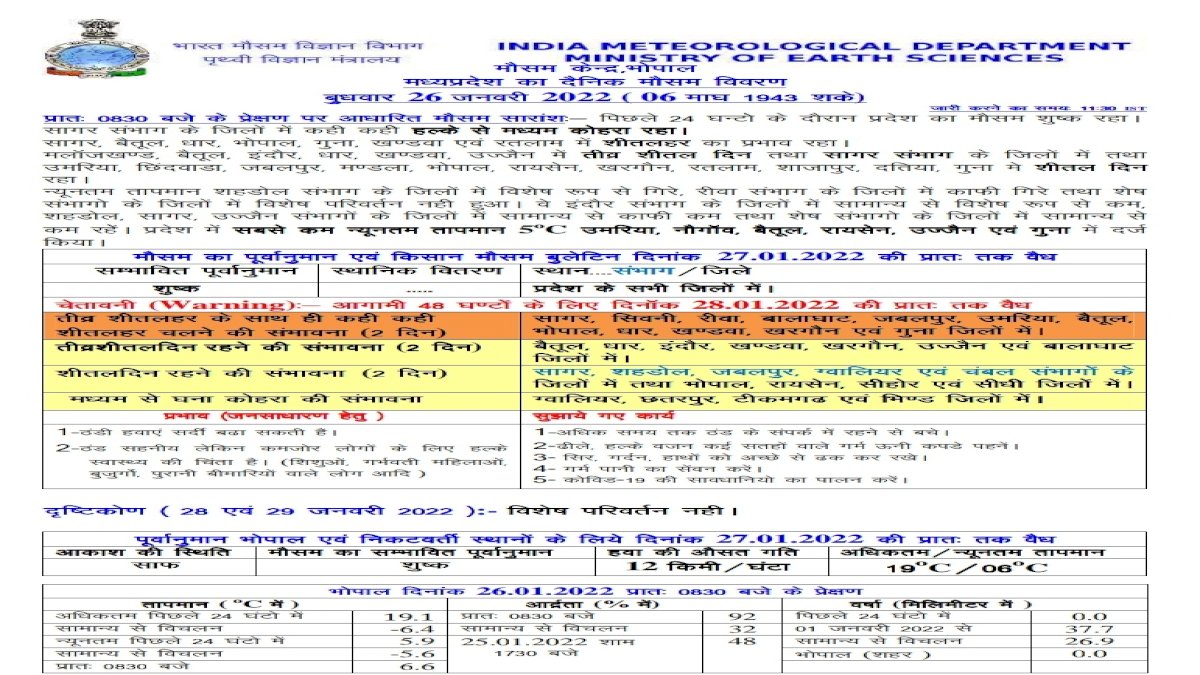 भारत मौसम विज्ञान विभाग
पृथ्वी विज्ञान मंत्रालय
INDIA METEOROLOGICAL DEPARTMENT
MINISTRY OF EARTH SCIENCES
मौसम केन्द्र,भोपाल
मध्यप्रदेश का दैनिक मौसम विवरण
बुधवार 26 जनवरी 2022 ( 06 माघ 1943 शके)
जारी करने का समय: 11:30 IST
प्रातः 0830 बजे के प्रेक्षण पर आधारित मौसम सारांशः– पिछले 24 घन्टो के दौरान प्रदेश का मौसम शुष्क रहा।
सागर संभाग के जिलों में कही कही हल्के से मध्यम कोहरा रहा।
सागर, बैतूल, धार, भोपाल, गुना, खण्डवा एवं रतलाम में शीतलहर का प्रभाव रहा।
मलॉजखण्ड, बैतूल, इंदौर, धार, खण्डवा, उज्जैन में तीव्र शीतल दिन तथा सागर संभाग के जिलों में तथा
उमरिया, छिंदवाडा, जबलपुर, मण्डला, भोपाल, रायसेन, खरगौन, रतलाम, शाजापुर, दतिया, गुना मे शीतल दिन
रहा।
न्यूनतम तापमान शहडोल संभाग के जिलों में विशेष रूप से गिरे, रीवा संभाग के जिलों में काफी गिरे तथा शेष
संभागो के जिलों में विशेष परिवर्तन नही हुआ। वे इंदौर संभाग के जिलों में सामान्य से विशेष रूप से कम,
शहडोल, सागर, उज्जैन संभागों के जिलों में सामान्य से काफी कम तथा शेष संभागो के जिलों में सामान्य से
कम रहें। प्रदेश में सबसे कम न्यूनतम तापमान 5°C उमरिया, नौगॉव, बैतूल, रायसेन, उज्जैन एवं गुना में दर्ज
किया।
मौसम का पूर्वानुमान एवं किसान मौसम बुलेटिन दिनांक 27.01.2022 की प्रातः तक वैध
सम्भावित पूर्वानुमान स्थानिक वितरण स्थान....संभाग/जिले
शुष्क ..... प्रदेश के सभी जिलों में।
चेतावनी (Warning):– आगामी 48 घण्टों के लिए दिनॉक 28.01.2022 की प्रातः तक वैध
तीव्र शीतलहर के साथ ही कही कही
शीतलहर चलने की संभावना (2 दिन)
सागर, सिवनी, रीवा, बालाघाट, जबलपुर, उमरिया, बैतूल,
भोपाल, धार, खण्डवा, खरगौन एवं गुना जिलों में।
तीव्रशीतलदिन रहने की संभावना (2 दिन)
बैतूल, धार, इंदौर, खण्डवा, खरगौन, उज्जैन एवं बालाघाट
जिलों में।
शीतलदिन रहने की संभावना (2 दिन)
सागर, शहडोल, जबलपुर, ग्वालियर एवं चंबल संभागों के
जिलों में तथा भोपाल, रायसेन, सीहोर एवं सीधी जिलों में।
मध्यम से घना कोहरा की संभावना ग्वालियर, छतरपुर, टीकमगढ एवं भिण्ड जिलों में।
प्रभाव (जनसाधारण हेतु ) सुझाये गए कार्य
1-ठंडी हवाएं सर्दी बढा सकती हैं।
2-ठंड सहनीय लेकिन कमजोर लोगों के लिए हल्के
स्वास्थ्य की चिंता है। (शिशुओं, गर्भवती महिलाओं,
बुजुर्गो, पुरानी बीमारियों वाले लोग आदि )
1-अधिक समय तक ठंड के संपर्क में रहने से बचे।
2-ढीले, हल्के वजन कई सतहों वाले गर्म ऊनी कपडे पहनें।
3- सिर, गर्दन, हाथों को अच्छे से ढक कर रखे।
4- गर्म पानी का सेंवन करें।
5- कोविड-19 की सावधानियो का पालन करें।
दृष्टिकोण ( 28 एवं 29 जनवरी 2022 ):- विशेष परिवर्तन नही।
पूर्वानुमान भोपाल एवं निकटवर्ती स्थानों के लिये दिनांक 27.01.2022 की प्रातः तक वैध
आकाश की स्थिति मौसम का सम्भावित पूर्वानुमान हवा की औसत गति अधिकतम/न्यूनतम तापमान
साफ शुष्क 12 किमी/घंटा 19°C/06°C
भोपाल दिनांक 26.01.2022 प्रातः 0830 बजे के प्रेक्षण
तापमान ( °C में ) आर्द्रता (% में) वर्षा (मिलिमीटर में )
अधिकतम पिछले 24 घंटो में 19.1 प्रातः 0830 बजे 92 पिछले 24 घंटो में 0.0
सामान्य से विचलन -6.4 सामान्य से विचलन 32 01 जनवरी 2022 से 37.7
न्यूनतम पिछले 24 घंटो में 5.9 25.01.2022 शाम 48 सामान्य से विचलन 26.9
सामान्य से विचलन -5.6 1730 बजे भोपाल (शहर ) 0.0
प्रातः 0830 बजे 6.6